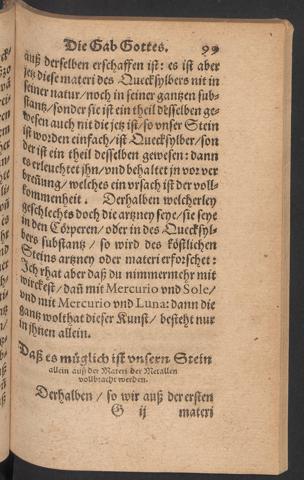 Die Gab Gottes. 99
auß derselben erschaffen ist: es ist aber
jetz diese materi des Quecksylbers nit in
seiner natur / noch in seiner gantzen sub-
stantz / sonder sie ist ein theil desselben ge-
wesen auch nit die jetz ist / so vnser Stein
ist worden einfach / ist Quecksylber / son
der ist ein theil desselben gewesen: dann
es erleuchtet jhn / vnd behaltet jn vor ver
breñung / welches ein vrsach ist der voll-
kommenheit. Derhalben welcherley
geschlechts doch die artzney seye / sie seye
in den Cörperen / oder in des Quecksyl-
bers substantz / so wird des köstlichen
Steins artzney oder materi erforschet:
Ich rhat aber daß du nimmermehr mit
wirckest / dañ mit Mercurio vnd Sole /
vnd mit Mercurio vnd Luna: dann die
gantz wolthat dieser Kunst / besteht nur
in jhnen allein.
Daß es müglich ist vnsern Stein
allein auß der Materi der Metallen
vollbracht werden.
Derhalben / so wir auß der ersten
G ij materi